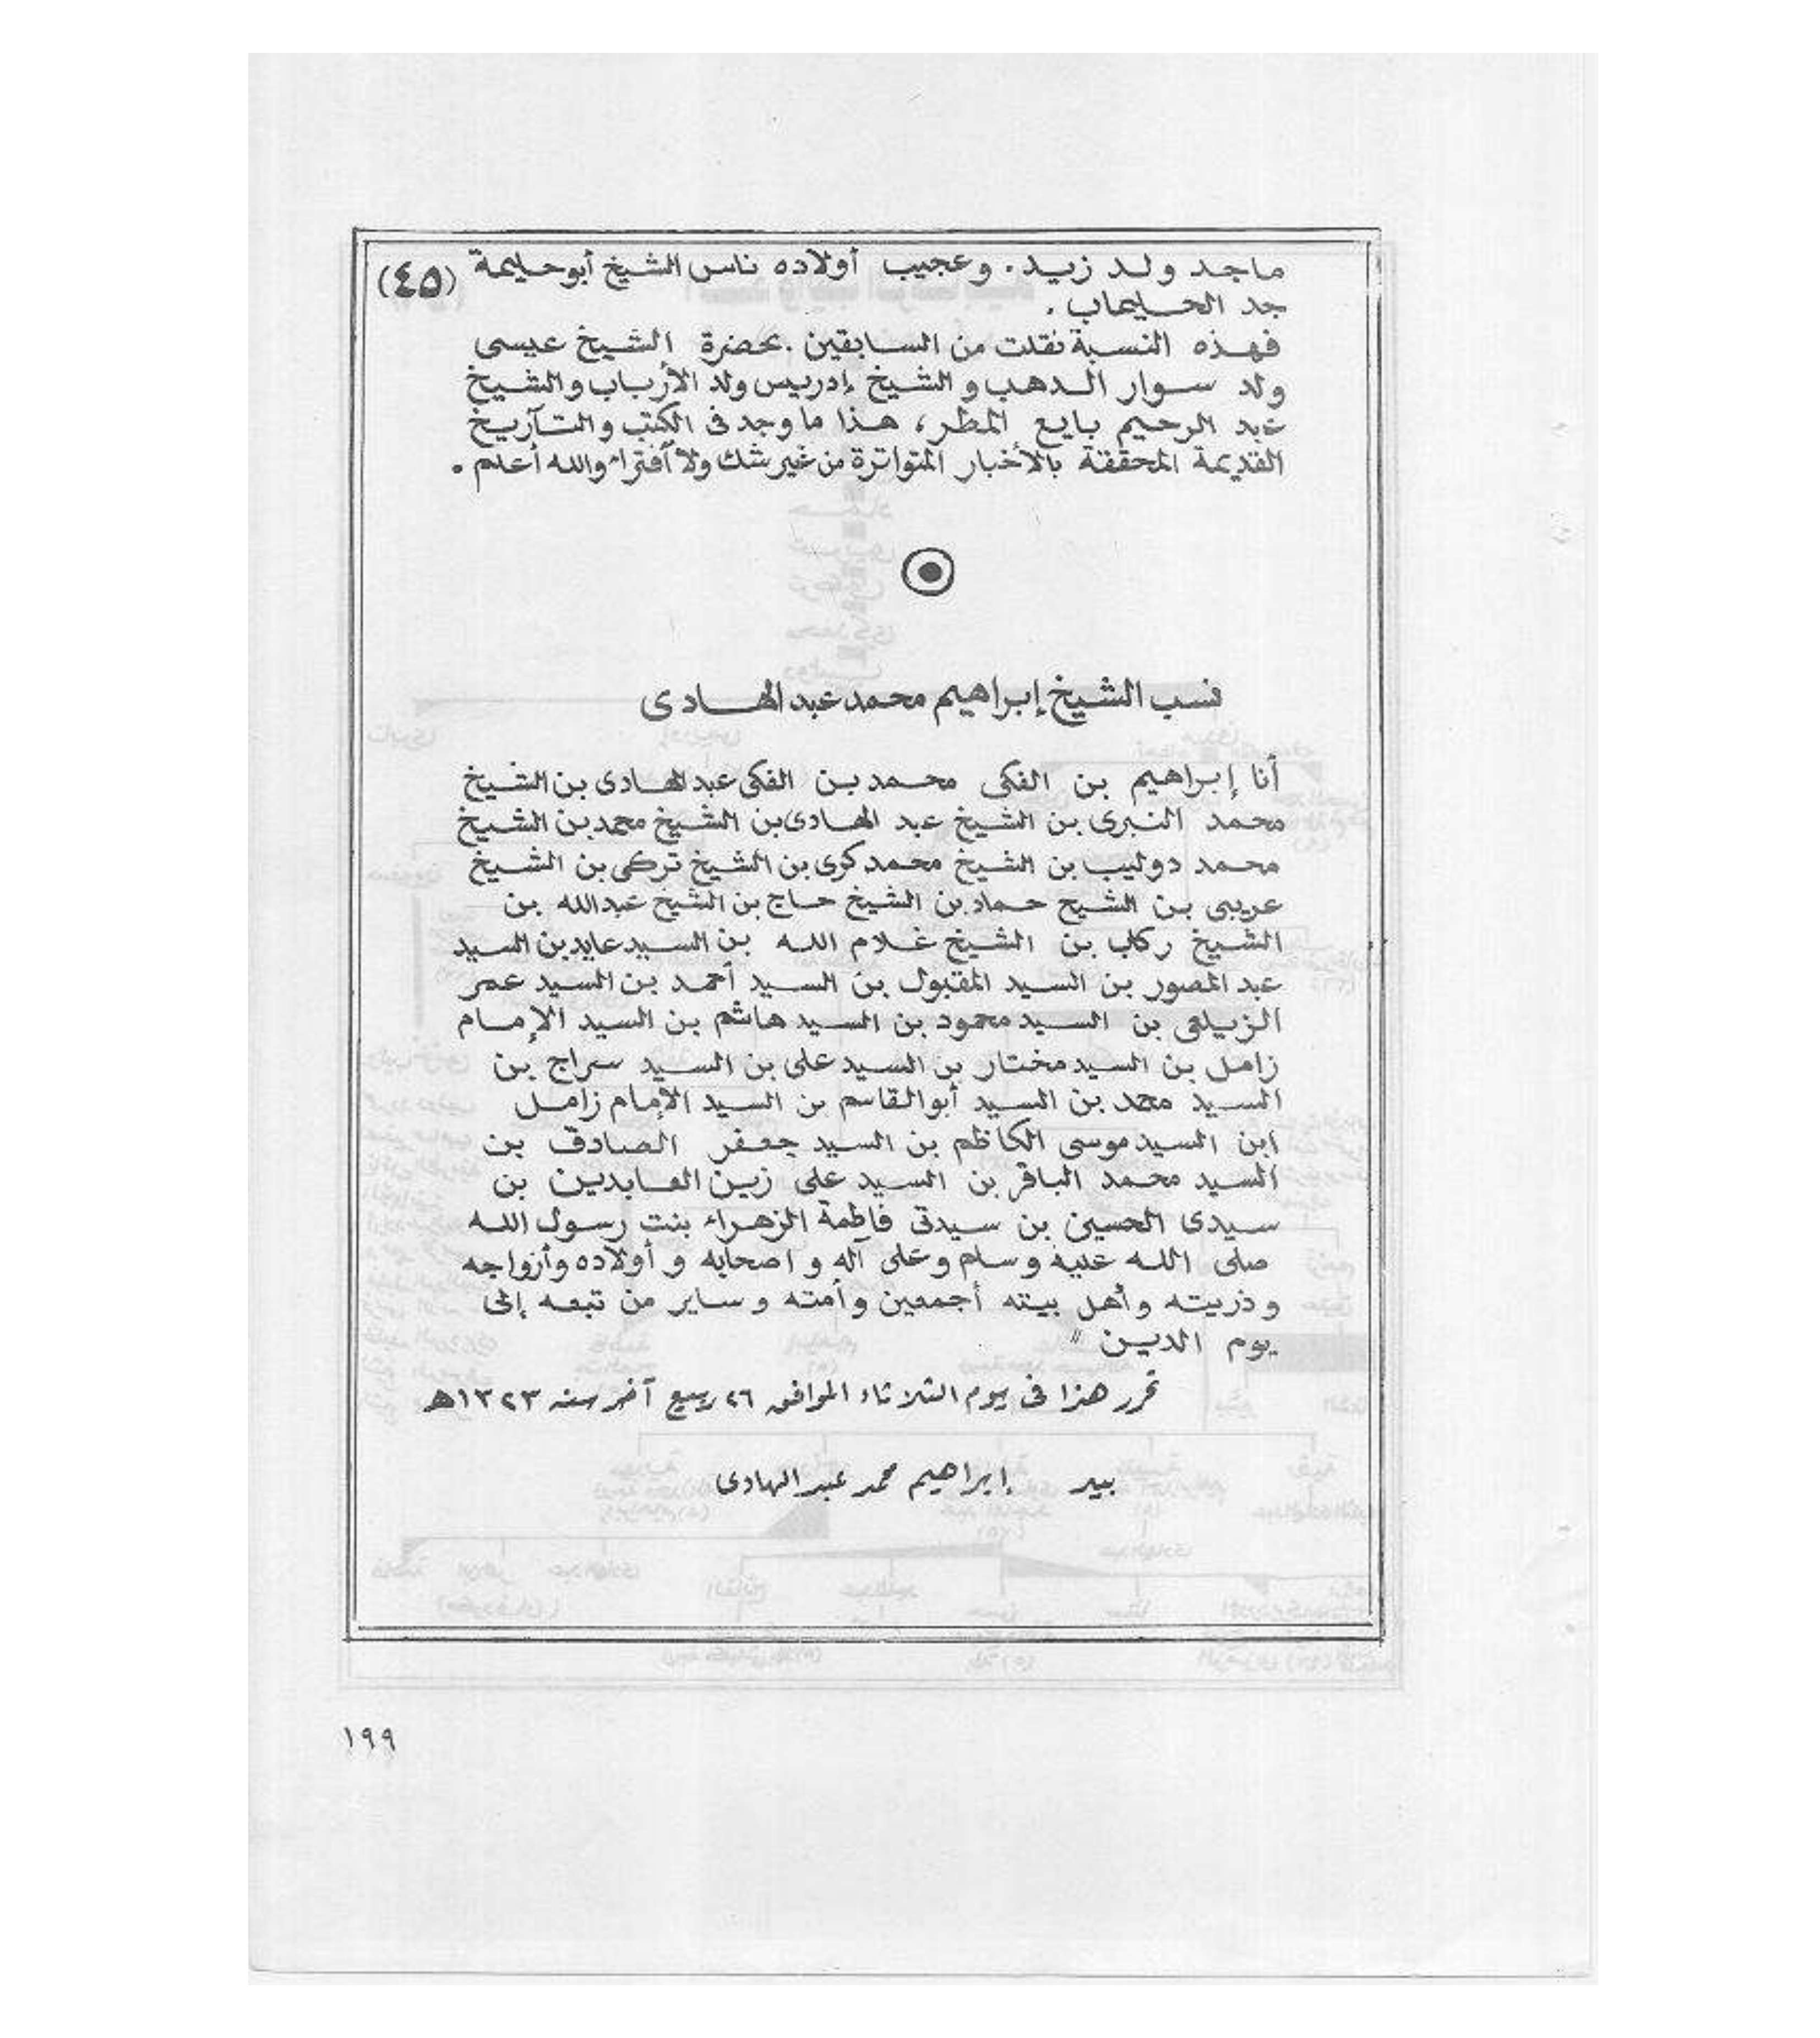 ماجد ولد زيد. وعجيب أولاده ناس الشيخ أبوحليمة (٤٥)
جد الحليماب.
فهذه النسبة نقلت من السابقين. بحضرة الشيخ عيسى
ولد سوار الدهب والشيخ إدريس ولد الأرباب والشيخ
عبد الرحيم بايع المطر، هذا ما وجد فى الكتب والتآريخ
القديمة المحققة بالأخبار المتواترة من غير شك ولا أفتراء والله أعلم.
نسب الشيخ إبراهيم محمد عبد الهادى
أنا إبراهيم بن الفكى محمد بن الفكى عبد الهادى بن الشيخ
محمد النبرى بن الشيخ عبد الهادى بن الشيخ محمد بن الشيخ
محمد دوليب بن الشيخ محمد كرى بن الشيخ تركى بن الشيخ
عريبى بن الشيح حماد بن الشيخ حاج بن الشيخ عبدالله بن
الشيخ ركاب بن الشيخ غلام الله بن السيد عايد بن السيد
عبد المصور بن السيد المقبول بن السيد أحمد بن السيد عمر
الزيلعى بن السيد محمود بن السيد هاشم بن السيد الإمام
زامل بن السيد مختار بن السيد على بن السيد سراج بن
السيد محمد بن السيد أبوالقاسم بن السيد الإمام زامل
ابن السيد موسى الكاظم بن السيد جعفر الصادق بن
السيد محمد الباقر بن السيد على زين العابدين بن
سيدى الحسين بن سيدتى فاطمة الزهراء بنت رسول الله
صلى الله عليه وسلم وعلى آله و اصحابه و أولاده وأزواجه
و ذريته وأهل بيته أجمعين وأمته و ساير من تبعه إلى
يوم الدين "
تحرر هذا فى يوم الثلاثاء الموافق ٢٦ ربيع آخر سنه ١٣٢٣هـ
بيد إبراهيم محمد عبد الهادى
١٩٩